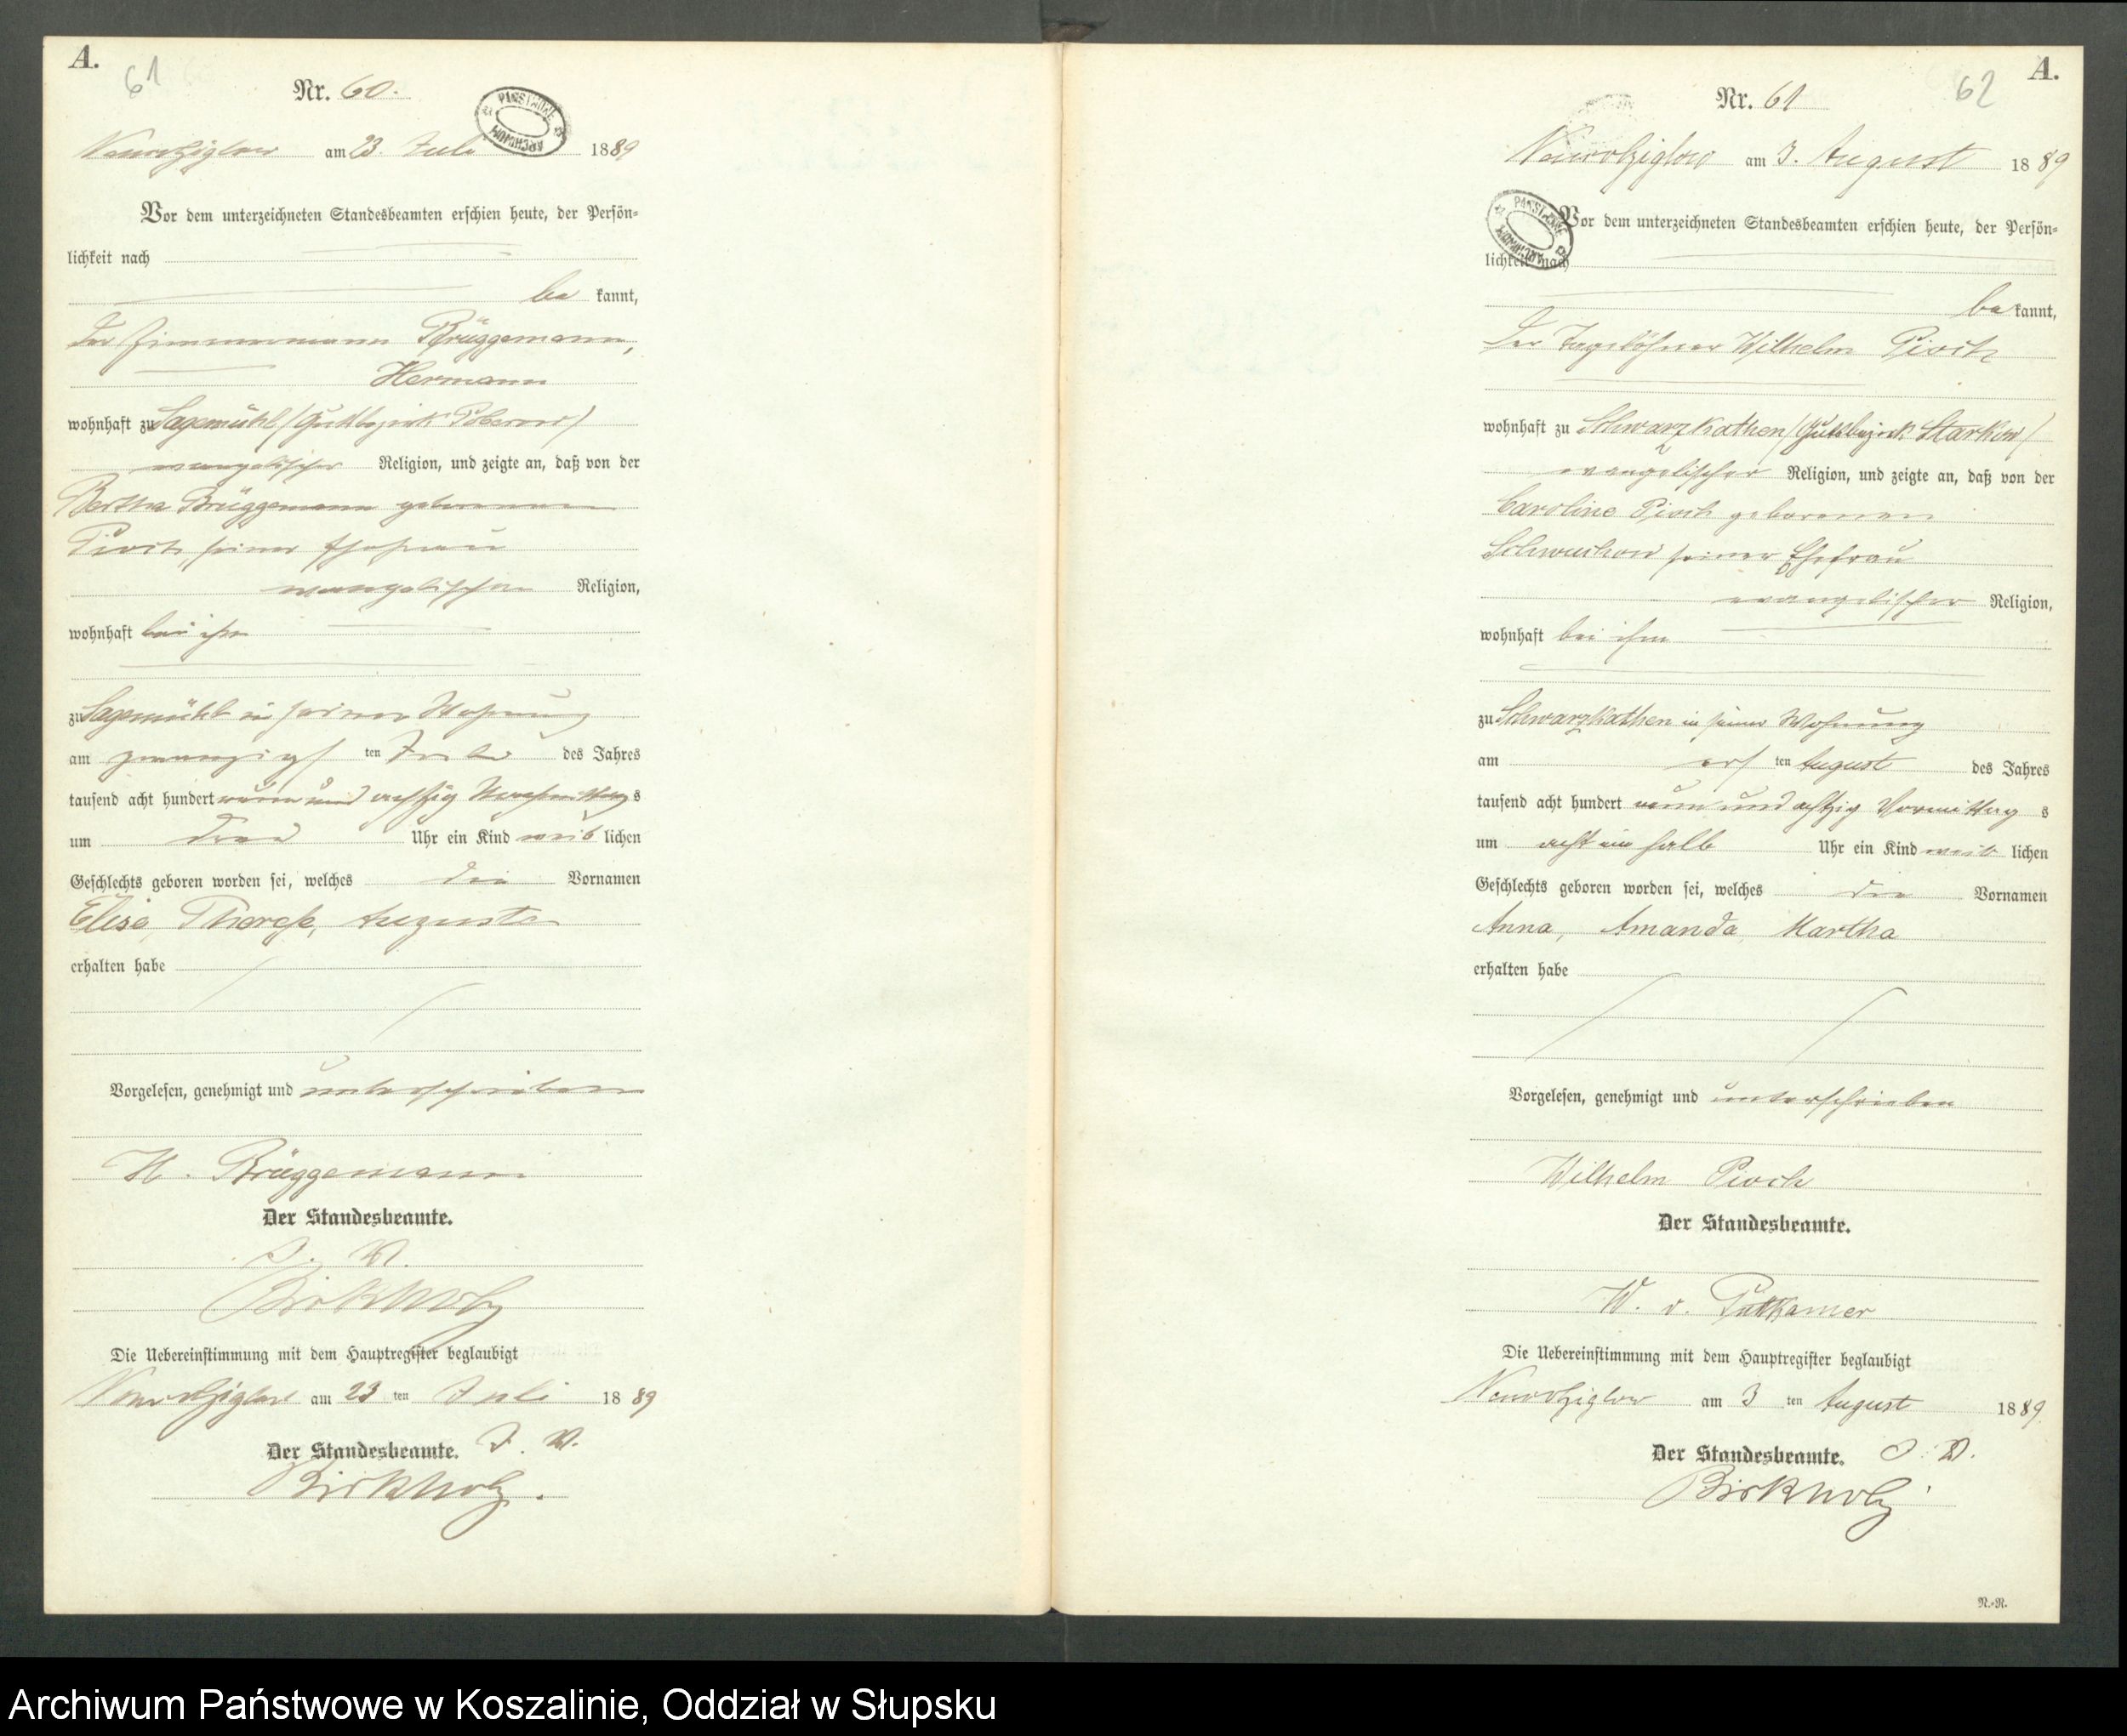 A.
61
Nr. 60.
PAŃSTWOWE ARCHIWUM
Neurolziglow am 23. Juli 1889
Vor dem unterzeichneten Standesbeamten erschien heute, der Persön-
lichkeit nach
be kannt,
Der Zimmermann Brüggemann,
Hermann
wohnhaft zu Sagemühl (Gutsbezirk Poberow)
evangelischer Religion, und zeigte an, daß von der
Bertha Brüggemann geborenen
Pioch, seiner Ehefrau
evangelischen Religion,
wohnhaft bei ihm
zu Sagemühl in seiner Wohnung
am zwanzigs ten Juli des Jahres
tausend acht hundert neun und achtzig Nachmittags
um drei Uhr ein Kind weib lichen
Geschlechts geboren worden sei, welches die Vornamen
Elise, Therese, Auguste
erhalten habe
Vorgelesen, genehmigt und unterschrieben
H. Brüggemann
Der Standesbeamte.
J. V.
Birkholz
Die Uebereinstimmung mit dem Hauptregister beglaubigt
Neurolziglow am 23 ten Juli 1889
Der Standesbeamte. J. V.
Birkholz.
A.
62
Nr. 61
PAŃSTWOWE ARCHIWUM
Neurolziglow am 3. August 1889
Vor dem unterzeichneten Standesbeamten erschien heute, der Persön-
lichkeit nach
be kannt,
Der Tagelöhner Wilhelm Pioch
wohnhaft zu Schwarzkathen (Gutsbezirk Starkow)
evangelischer Religion, und zeigte an, daß von der
Caroline Pioch geborenen
Schwuchow seiner Ehefrau
evangelischer Religion,
wohnhaft bei ihm
zu Schwarzkathen in seiner Wohnung
am ers ten August des Jahres
tausend acht hundert neun und achtzig Vormittag s
um acht ein halb Uhr ein Kind weib lichen
Geschlechts geboren worden sei, welches die Vornamen
Anna, Amanda Martha
erhalten habe
Vorgelesen, genehmigt und unterschrieben
Wilhelm Pioch
Der Standesbeamte.
W. v. Puttkamer
Die Uebereinstimmung mit dem Hauptregister beglaubigt
Neurolziglow am 3 ten August 1889
Der Standesbeamte. J. V.
Birkholz
N.-N.
Archiwum Państwowe w Koszalinie, Oddział w Słupsku